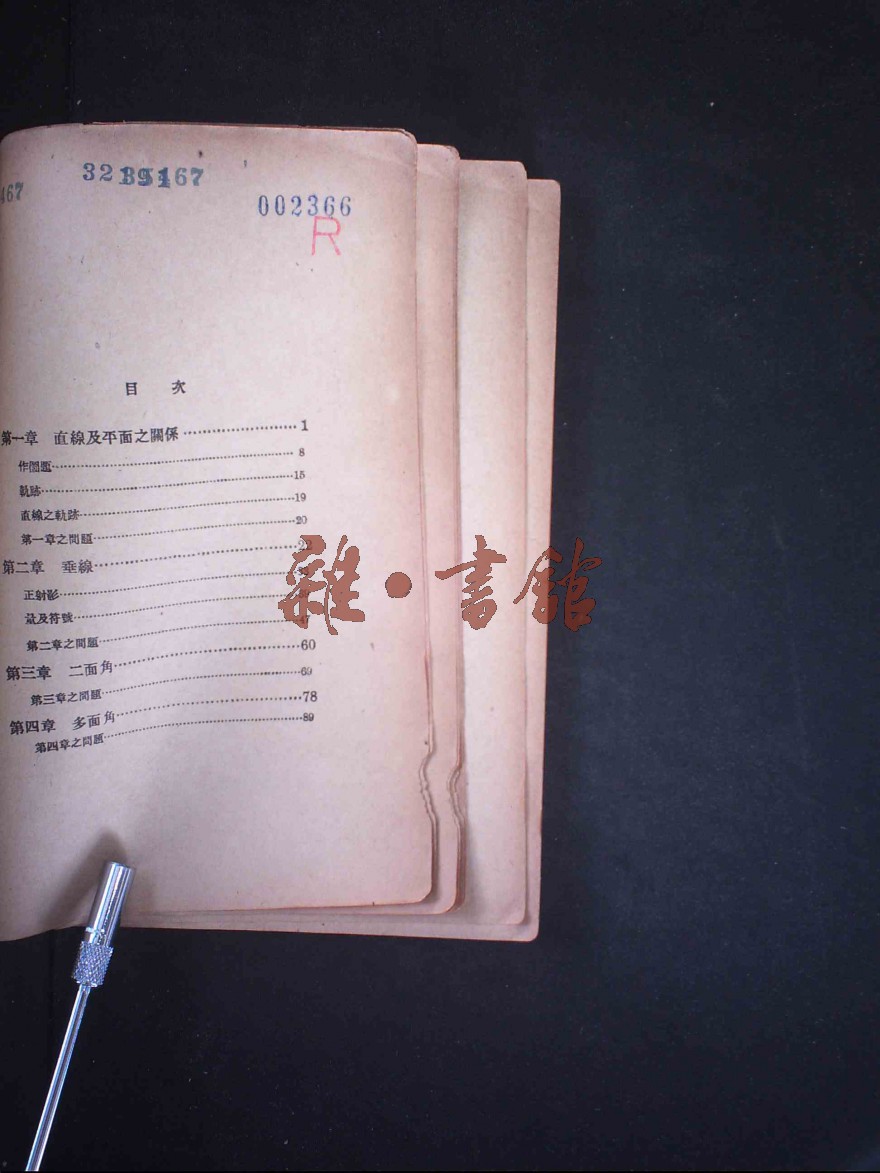 467
002366
R
目 次
第一章 直線及平面之關係 1
作圖題 8
軌跡 15
直線之軌跡 19
第一章之問題 20
第二章 垂線 22
正射影
量及符號 47
第二章之問題
第三章 二面角 60
第三章之問題 69
第四章 多面角 78
第四章之問題 89
雜·書館